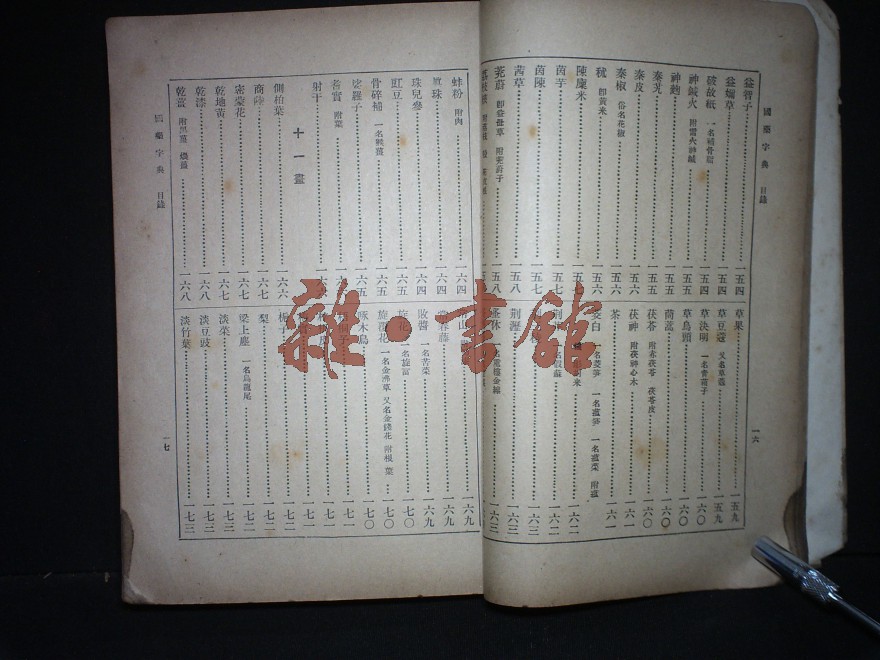 國藥字典 目錄
一六
益智子 一五四
益孋草 一五四
破故紙 一名補骨脂 一五四
神鍼火 附雷火神鍼 一五四
神麯 一五五
秦艽 一五五
秦皮 一五五
秦椒 俗名花椒 一五六
秫 即黃米 一五六
陳廩米 一五七
茵芋 一五七
茵陳 一五七
茜草 一五八
茺蔚 即益母草 附茺蔚子 一五八
草果 一五九
草豆蔻 又名草蔻 一五九
草決明 一名青葙子 一六〇
草烏頭 一六〇
茼蒿 一六〇
茯苓 附赤茯苓 茯苓皮 一六〇
茯神 附茯神心木 一六一
茶 一六一
茭白 一名茭筍 一名菰筍 一名菰菜 附菰
米 一六二
荊瀝 一六三
蚤休
蚌粉 附肉 一六四
眞珠 一六四
珠兒參 一六四
豇豆 一六五
骨碎補 一名猴薑 一六五
娑羅子 一六五
耆實 附葉
射干
十一畫
側柏葉 一六六
商陸 一六七
密蒙花 一六七
乾地黃 一六七
乾漆 一六八
乾薑 附黑薑 煨薑 一六八
山
常春藤 一六九
敗醬 一名苦菜 一六九
旋花 一名旋葍 一七〇
旋覆花 一名金沸草 又名金錢花 附根 葉 一七〇
啄木鳥 一七〇
梔子 一七二
梨 一七二
梁上塵 一名烏龍尾 一七二
淡菜 一七三
淡豆豉 一七三
淡竹葉 一七三
國藥字典 目錄
一七
雜·書館